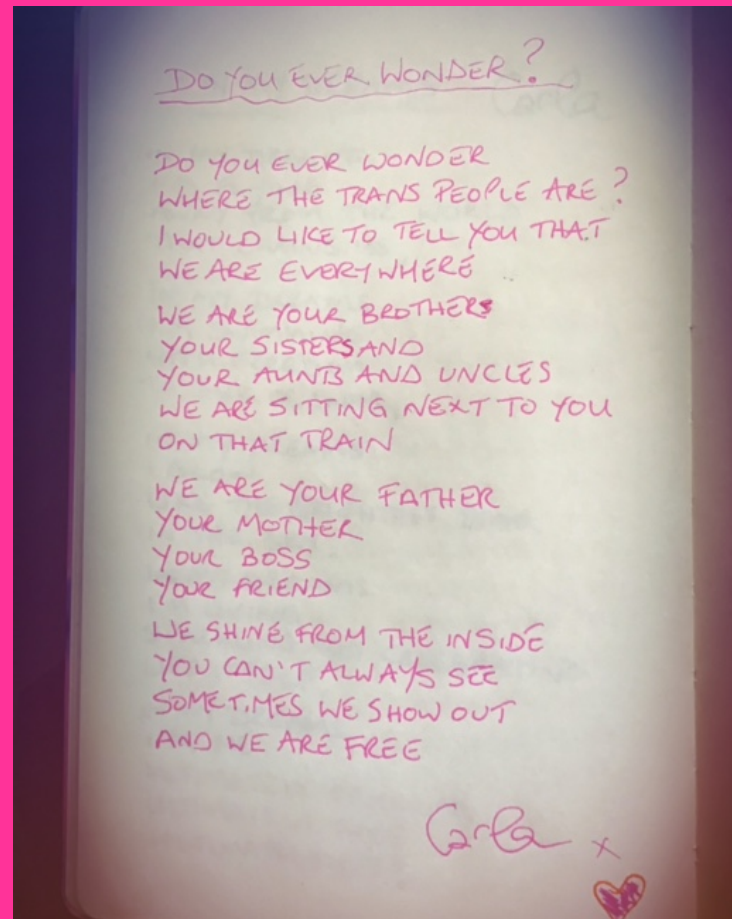 DO YOU EVER WONDER?
DO YOU EVER WONDER
WHERE THE TRANS PEOPLE ARE?
I WOULD LIKE TO TELL YOU THAT
WE ARE EVERYWHERE
WE ARE YOUR BROTHERS
YOUR SISTERS AND
YOUR AUNTS AND UNCLES
WE ARE SITTING NEXT TO YOU
ON THAT TRAIN
WE ARE YOUR FATHER
YOUR MOTHER
YOUR BOSS
YOUR FRIEND
WE SHINE FROM THE INSIDE
YOU CAN'T ALWAYS SEE
SOMETIMES WE SHOW OUT
AND WE ARE FREE
Carla x